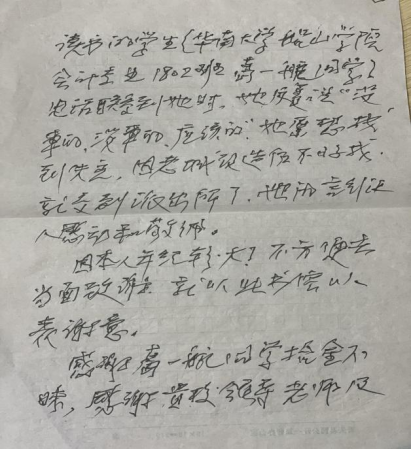 读书的学生(华南大学船山学院
会计专业1802班 高一帆同学)
电话联系到她时,她反复说"没
事的,没事的,应该的"她原想找
到失主,因老城改造估不好找,
就交到派出所了,她的言行让
人感动和敬佩。
因本人年纪较大了 不方便去
当面致谢 就以此书信以
表谢意。
感谢高一帆同学拾金不
昧,感谢贵校领导老师及